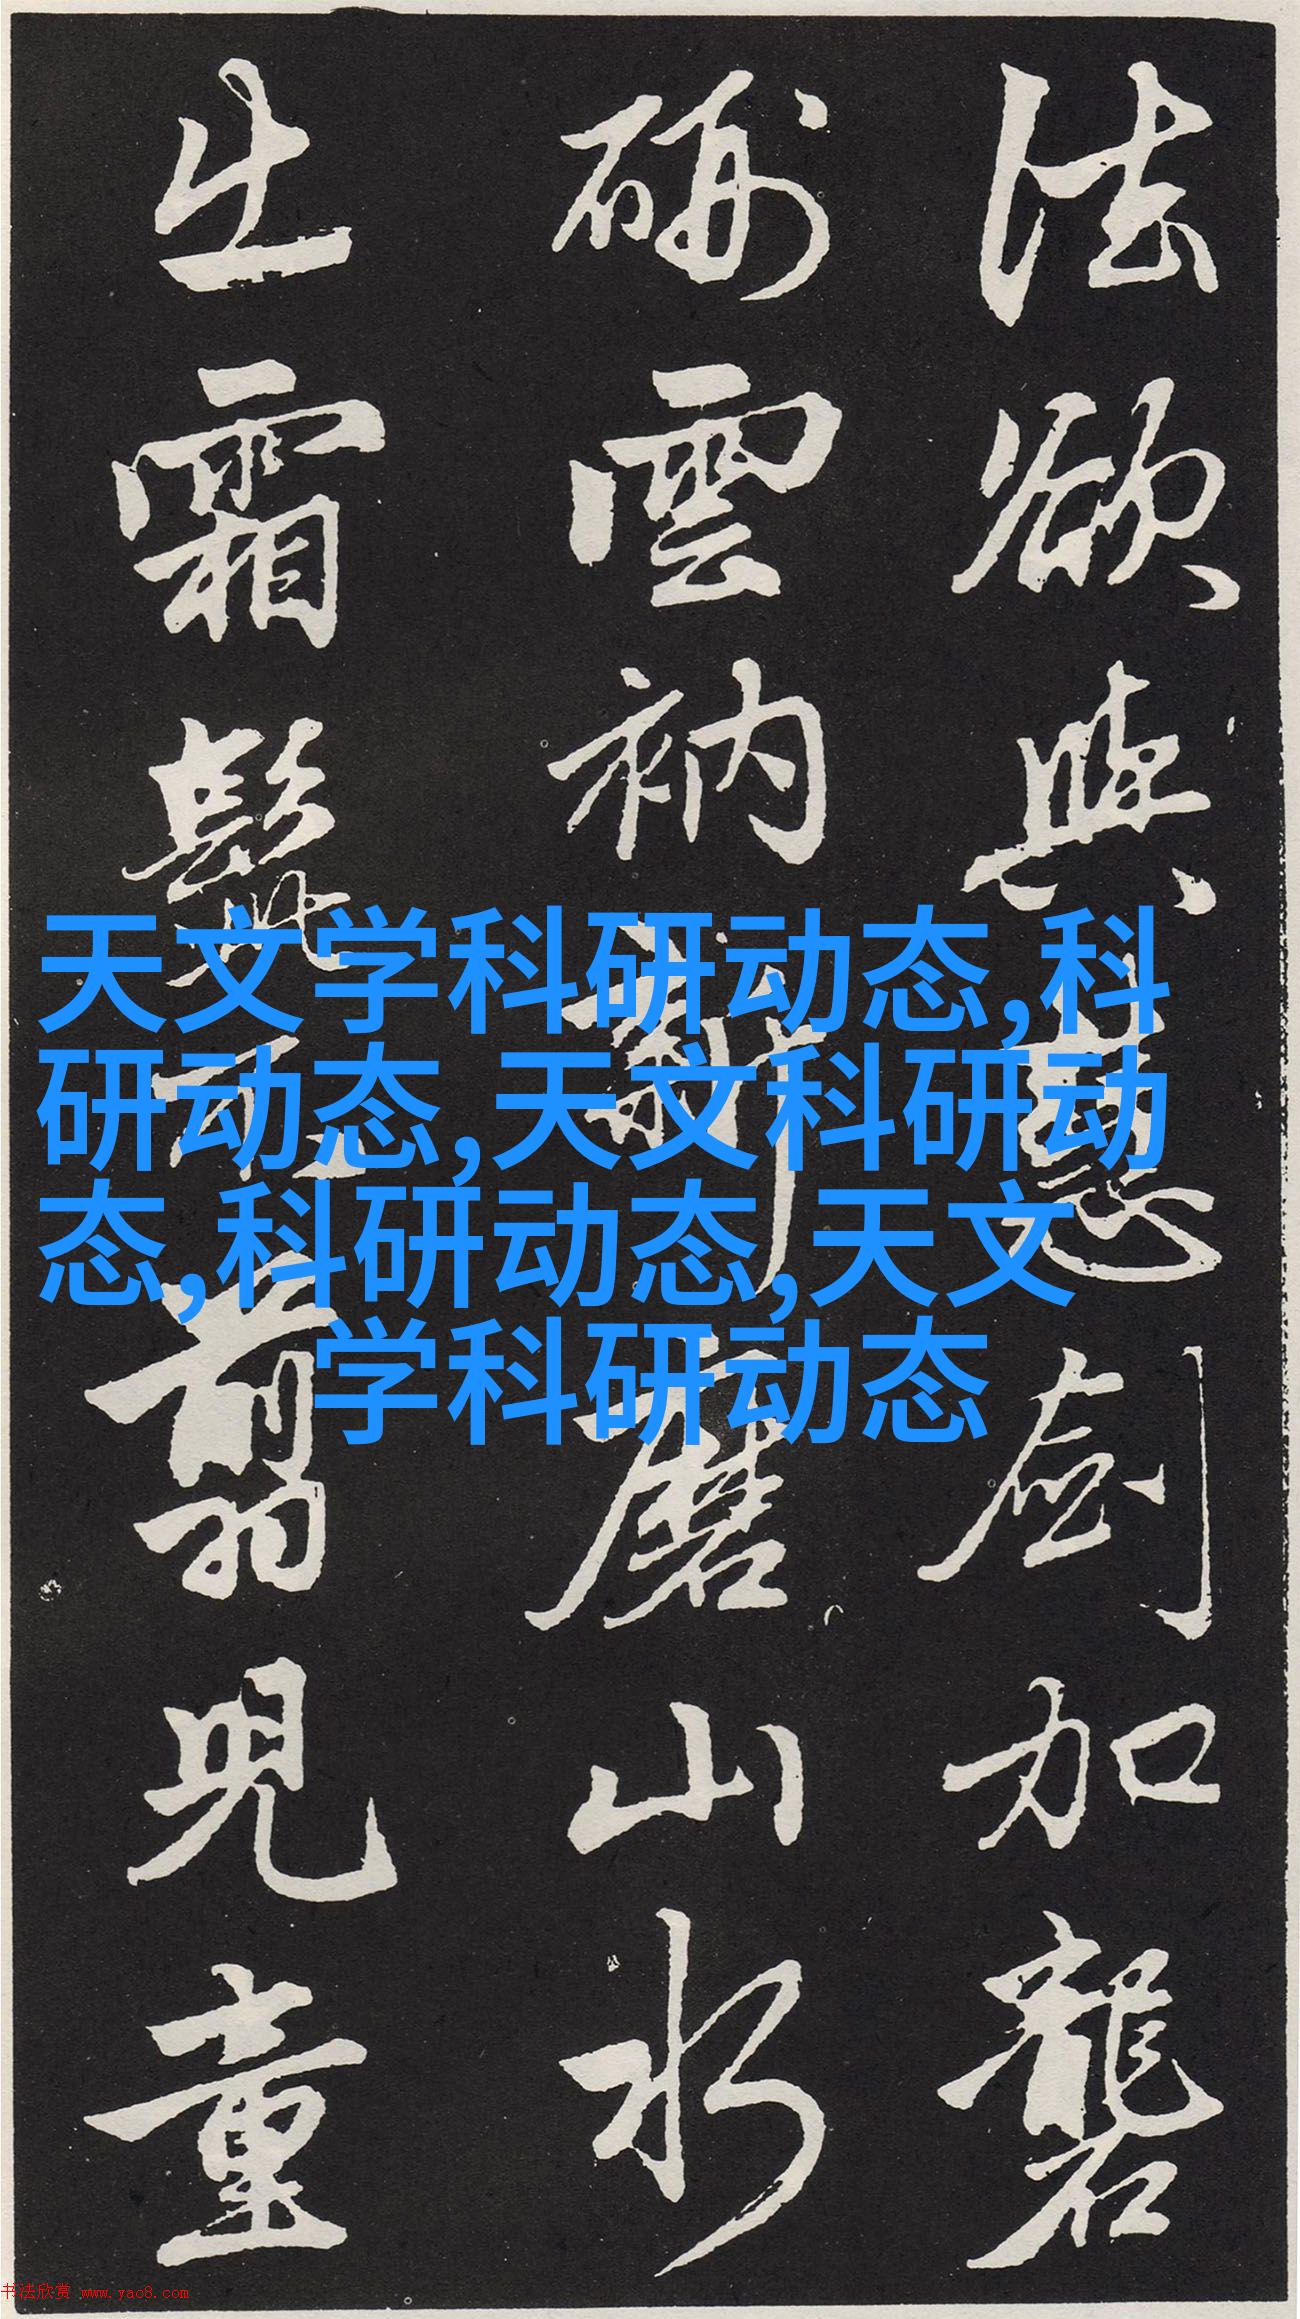 法欲與慧劍加礱
硎雲衲新磨山水
出霜髭不翦兒童
天文学科研动态,科
研动态,天文科研动
态,科研动态,天文
学科研动态
书法欣赏 www.yac8.com